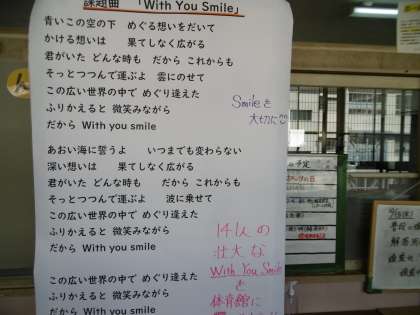 課題曲 「With You Smile」
青いこの空の下 めぐる想いをだいて
かける想いは 果てしなく広がる
君がいた どんな時も だから これからも
そっとつつんで運ぶよ 雲にのせて
この広い世界の中で めぐり逢えた
ふりかえると 微笑みながら
だから With you smile
あおい海に誓うよ いつまでも変わらない
深い想いは 果てしなく広がる
君がいた どんな時も だから これからも
そっとつつんで運ぶよ 波に乗せて
この広い世界の中で めぐり逢えた
ふりかえると 微笑みながら
だから With you smile
この広い世界の中で めぐり逢えた
ふりかえると 微笑みながら
だから With you smile
Smileを
大切に
14人の
壮大な
With You Smile
を
体育館に
の予定